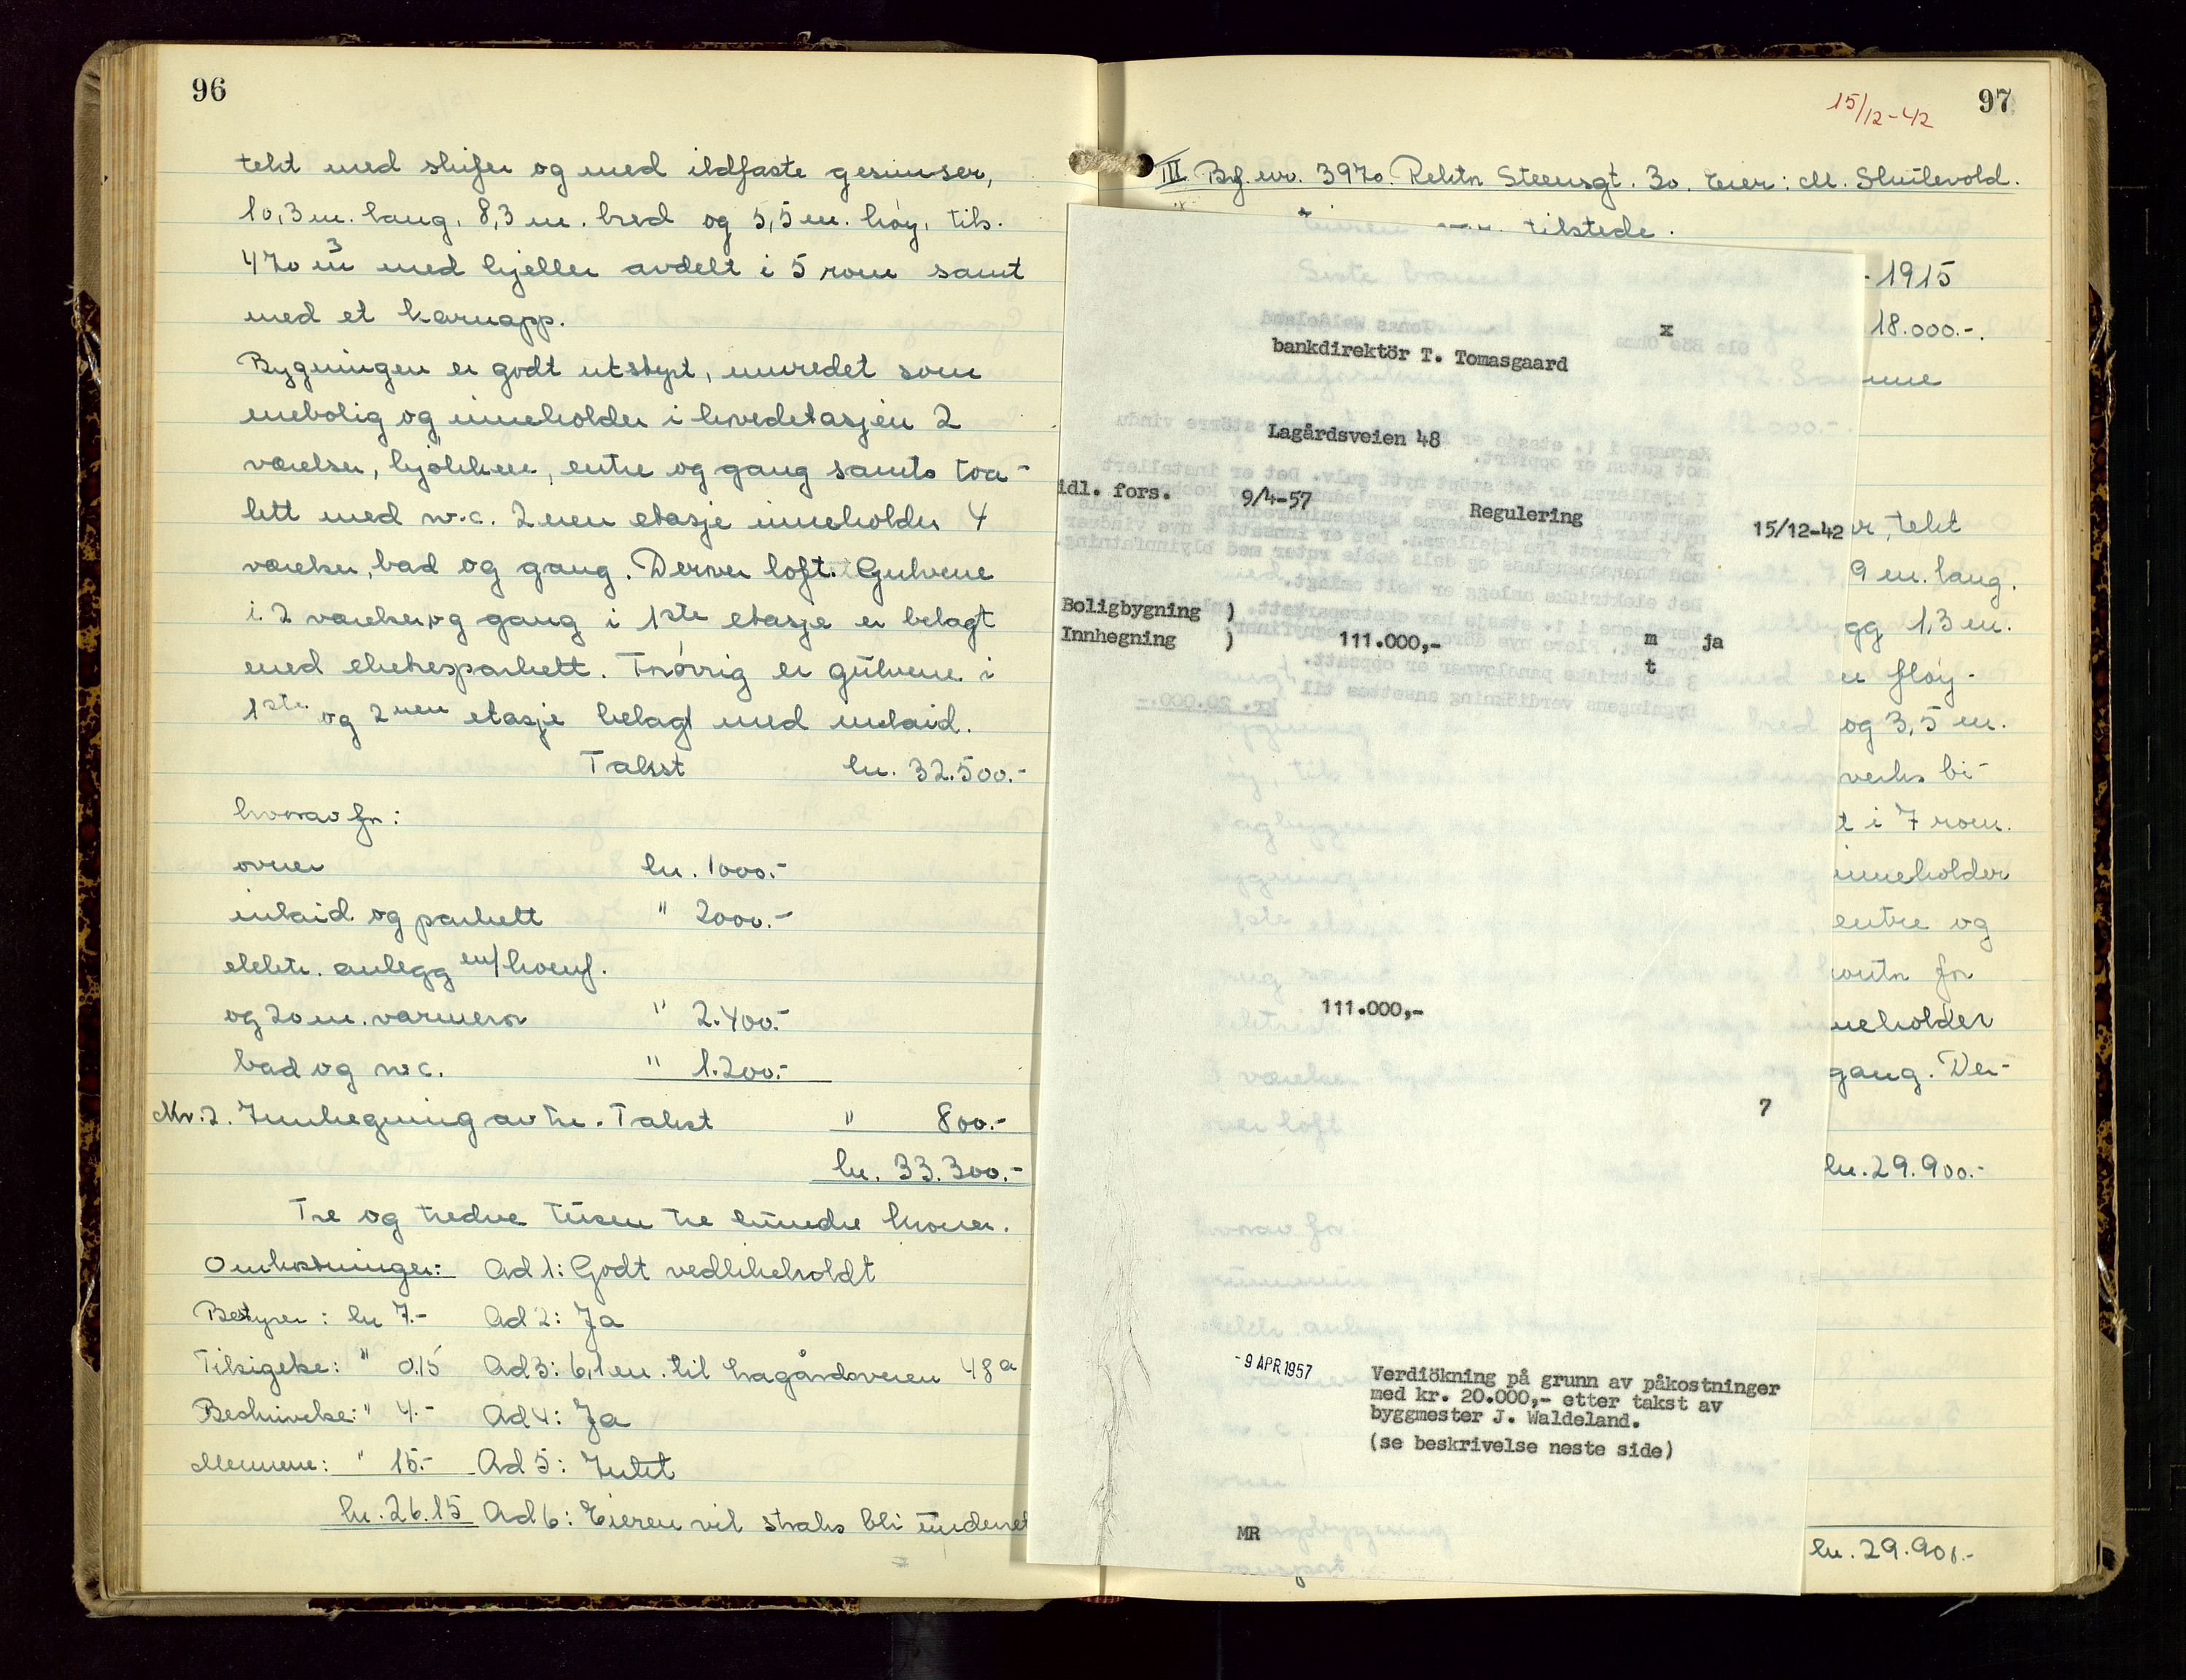 96
tekt med skifer og med ildfaste gesimser,
10,3 m. lang, 8,3 m. bred og 5,5 m. høy, tils.
470 m³ med kjeller avdelt i 5 rom samt
med et karnapp.
Bygningen er godt utstyrt, innredet som
enebolig og inneholder i hovedetasjen 2
værelser, kjøkken, entre og gang samt toa-
lett med w.c. 2nen etasje inneholder 4
værelser, bad og gang. Derover loft. Gulvene
i 2 værelser og gang i 1ste etasje er belagt
med ekeheparkett. Forøvrig er gulvene i
1ste og 2nen etasje belagt med inlaid.
Takst kr. 32.500.-
hvorav for:
ovner kr. 1000.-
inlaid og parkett " 2000.-
elektr. anlegg m/komf.
og 20 m. varmerør " 2.400.-
bad og w.c. " 1.200.-
Nr. 2. Innhegning av tre. Takst " 800.-
kr. 33.300.-
Tre og tredve tusen tre hundre kroner.
Omkostninger: Ad 1: Godt vedlikeholdt
Bestyrer: kr 7.- Ad 2: Ja
Tilsigelse: " 0.15 Ad 3: 6,1 m. til Lagårdsveien 48a
Beskrivelse: " 4.- Ad 4: Ja
Mennene: " 15.- Ad 5: Intet
kr. 26.15 Ad 6: Eieren vil straks bli underret
15/12-42 97
III Brf. nr. 3970. Rektor Steensgt. 30. Eier: M. Skuilevold.
Eieren var tilstede.
- 1915
18.000.-.
x
bankdirektör T. Tomasgaard
Lagårdsveien 48
idl. fors. 9/4-57 Regulering 15/12-42
tekt
9 m. lang.
Boligbygning )
Innhegning ) 111.000,- m ja
t
gg 1,3 m.
n fløy-
og 3,5 m.
verks bi-
t i 7 rom.
inneholder
entre og
for
111.000,-
neholder
gang. Der-
7
kr. 29.900.-
-9 APR 1957
Verdiökning på grunn av påkostninger
med kr. 20.000,- etter takst av
byggmester J. Waldeland.
(se beskrivelse neste side)
MR
kr. 29.900.-